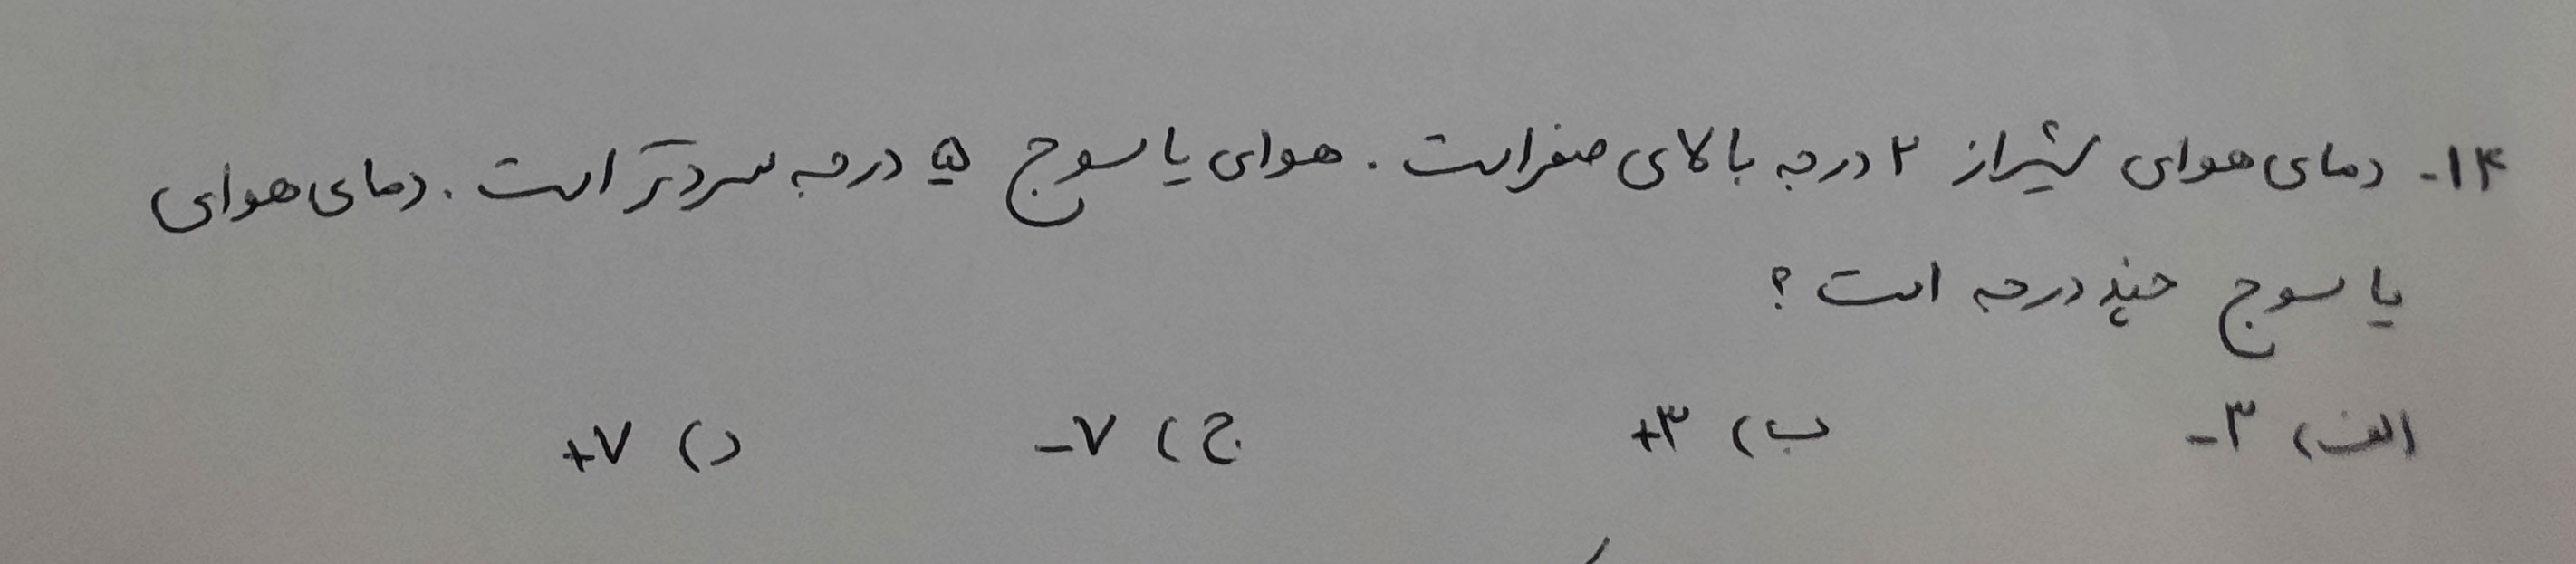 ۱۴- دمای هوای شیراز ۲ درجه بالای صفر است. هوای یاسوج ۵ درجه سردتر است. دمای هوای
یاسوج چند درجه است؟
الف) ۳- ب) ۳+ ج) ۷- د) ۷+